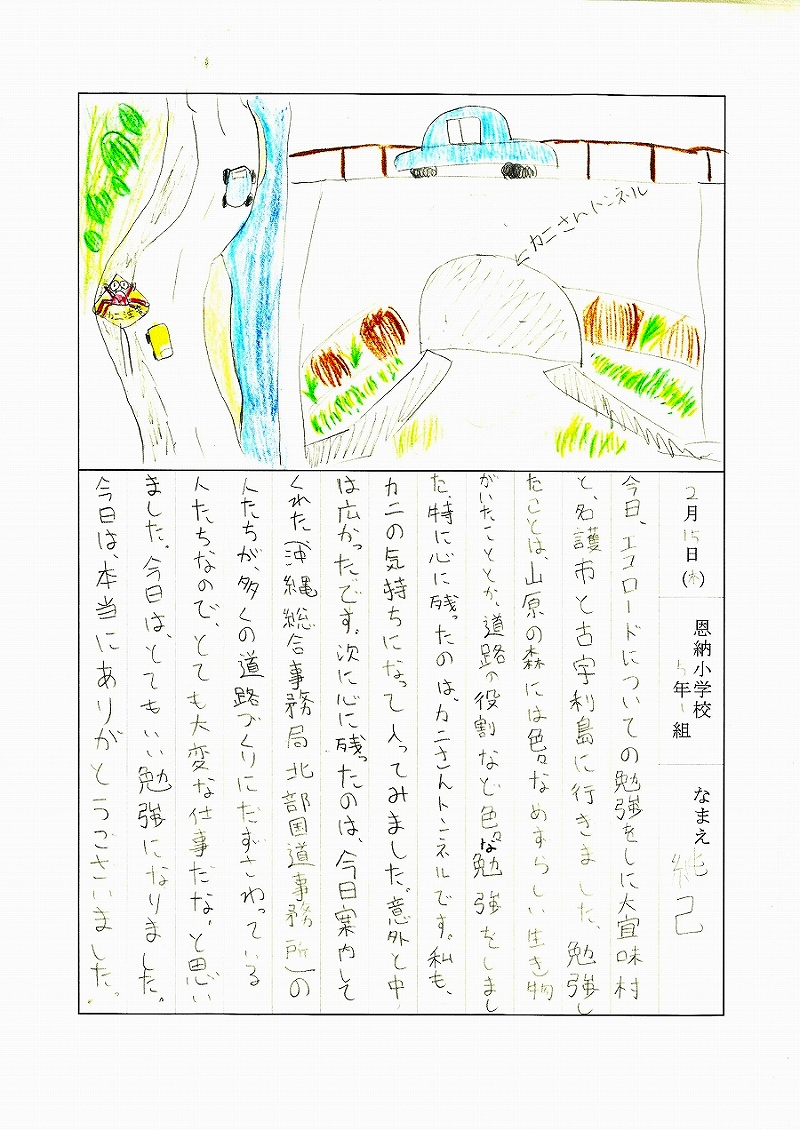 ←カニさんトンネル
2月15日(木)
恩納小学校
5年1組
なまえ 純己
今日、エコロードについての勉強をしに大宜味村
と、名護市と古宇利島に行きました、勉強し
たことは、山原の森には色々なめずらしい生き物
がいたこととか、道路の役割など色々な勉強をしまし
た。特に心に残ったのは、カニさんトンネルです。私も、
カニの気持ちになって入ってみました。意外と中
は広かったです。次に心に残ったのは、今日案内して
くれた(沖縄総合事務局北部国道事務所)の
人たちが、多くの道路づくりにたずさわっている
人たちなので、とても大変な仕事だな、と思い
ました。今日は、とてもいい勉強になりました。
今日は、本当にありがとうございました。